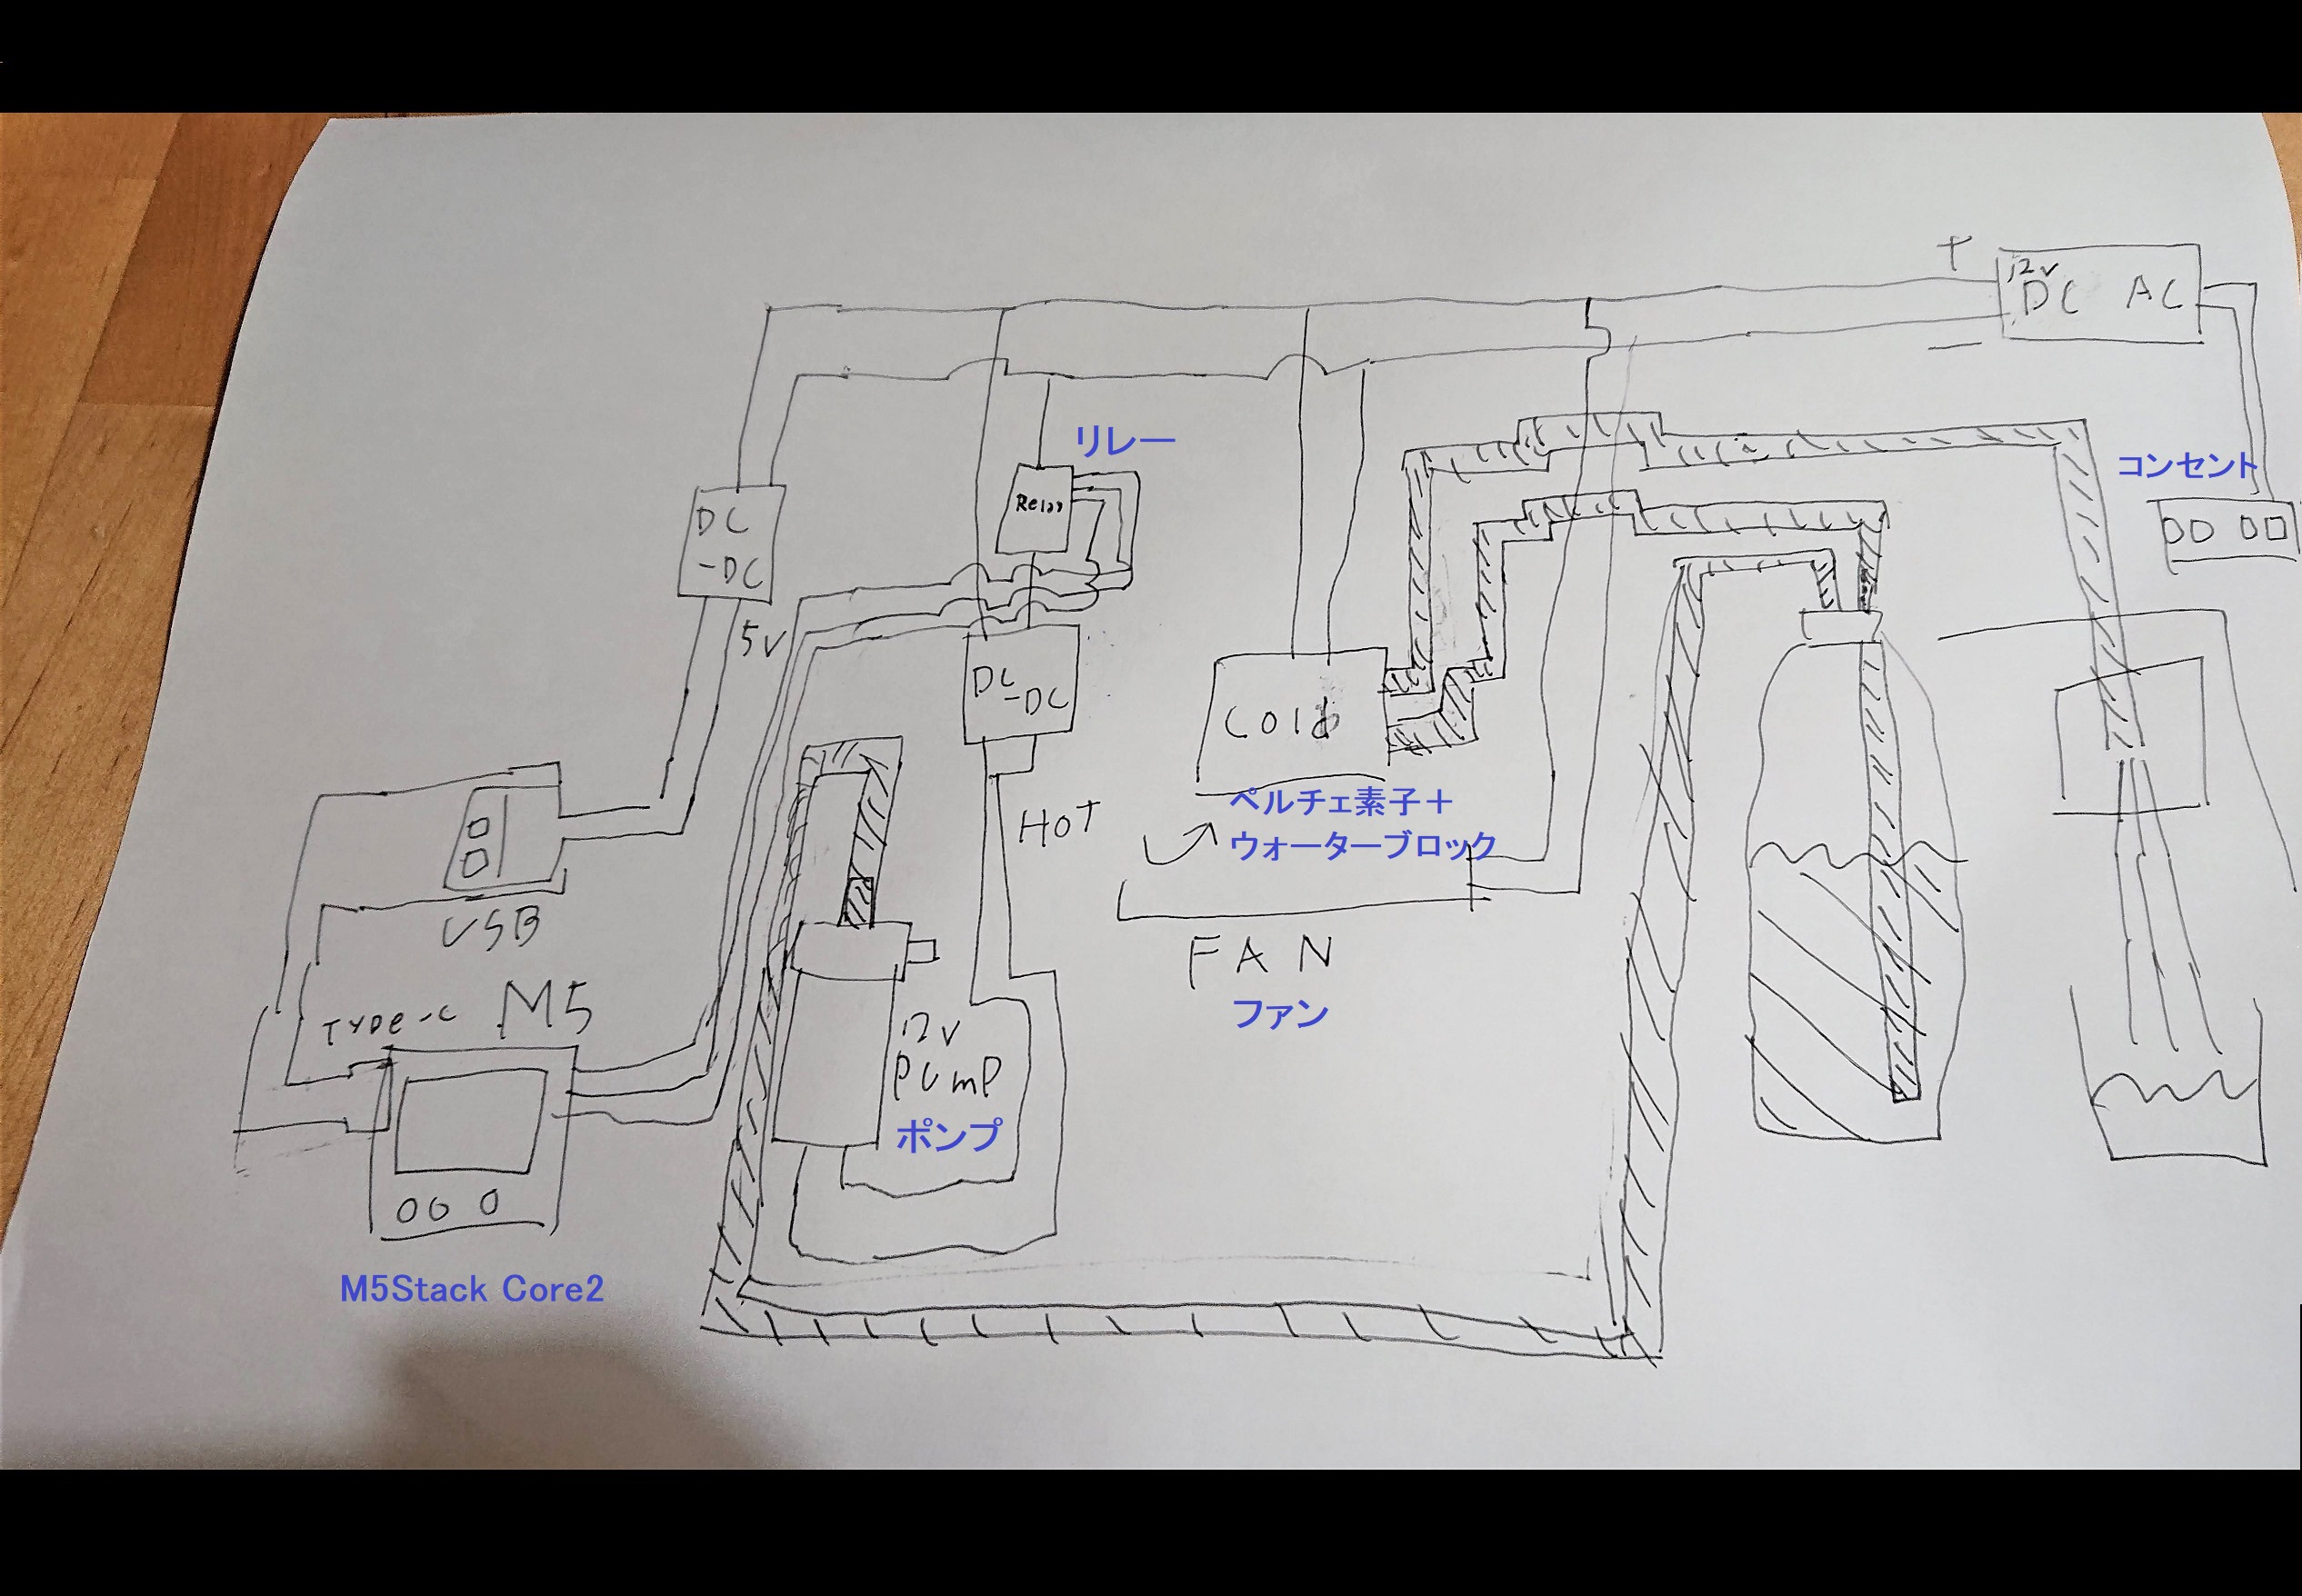 +
12v
DC AC
−
リレー
Relay
コンセント
DC
-DC
5V
DC
-DC
Cold
HOT
ペルチェ素子＋
ウォーターブロック
USB
FAN
ファン
TYPE-C M5
12v
PUMP
ポンプ
M5Stack Core2